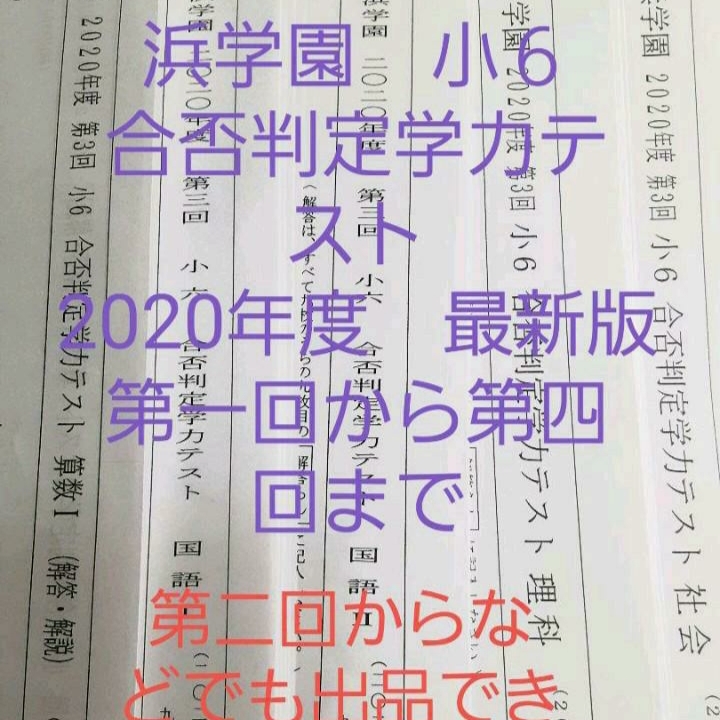 浜学園 小6
合否判定学力テ
スト
2020年度 最新版
第一回から第四
回まで
第二回からな
どでも出品でき
浜学園 2020年度 第3回 小6 合否判定学力テスト 社会
学園 2020年度 第3回 小6 合否判定学力テスト 理科
学園 二〇二〇年度 第三回 小六 合否判定学力テスト 国語Ⅱ
(解答は、すべて
学園 二〇二〇年度 第三回 小六 合否判定学力テスト 国語
2020年度 第3回 小6 合否判定学力テスト 算数Ⅰ (解答・解説)